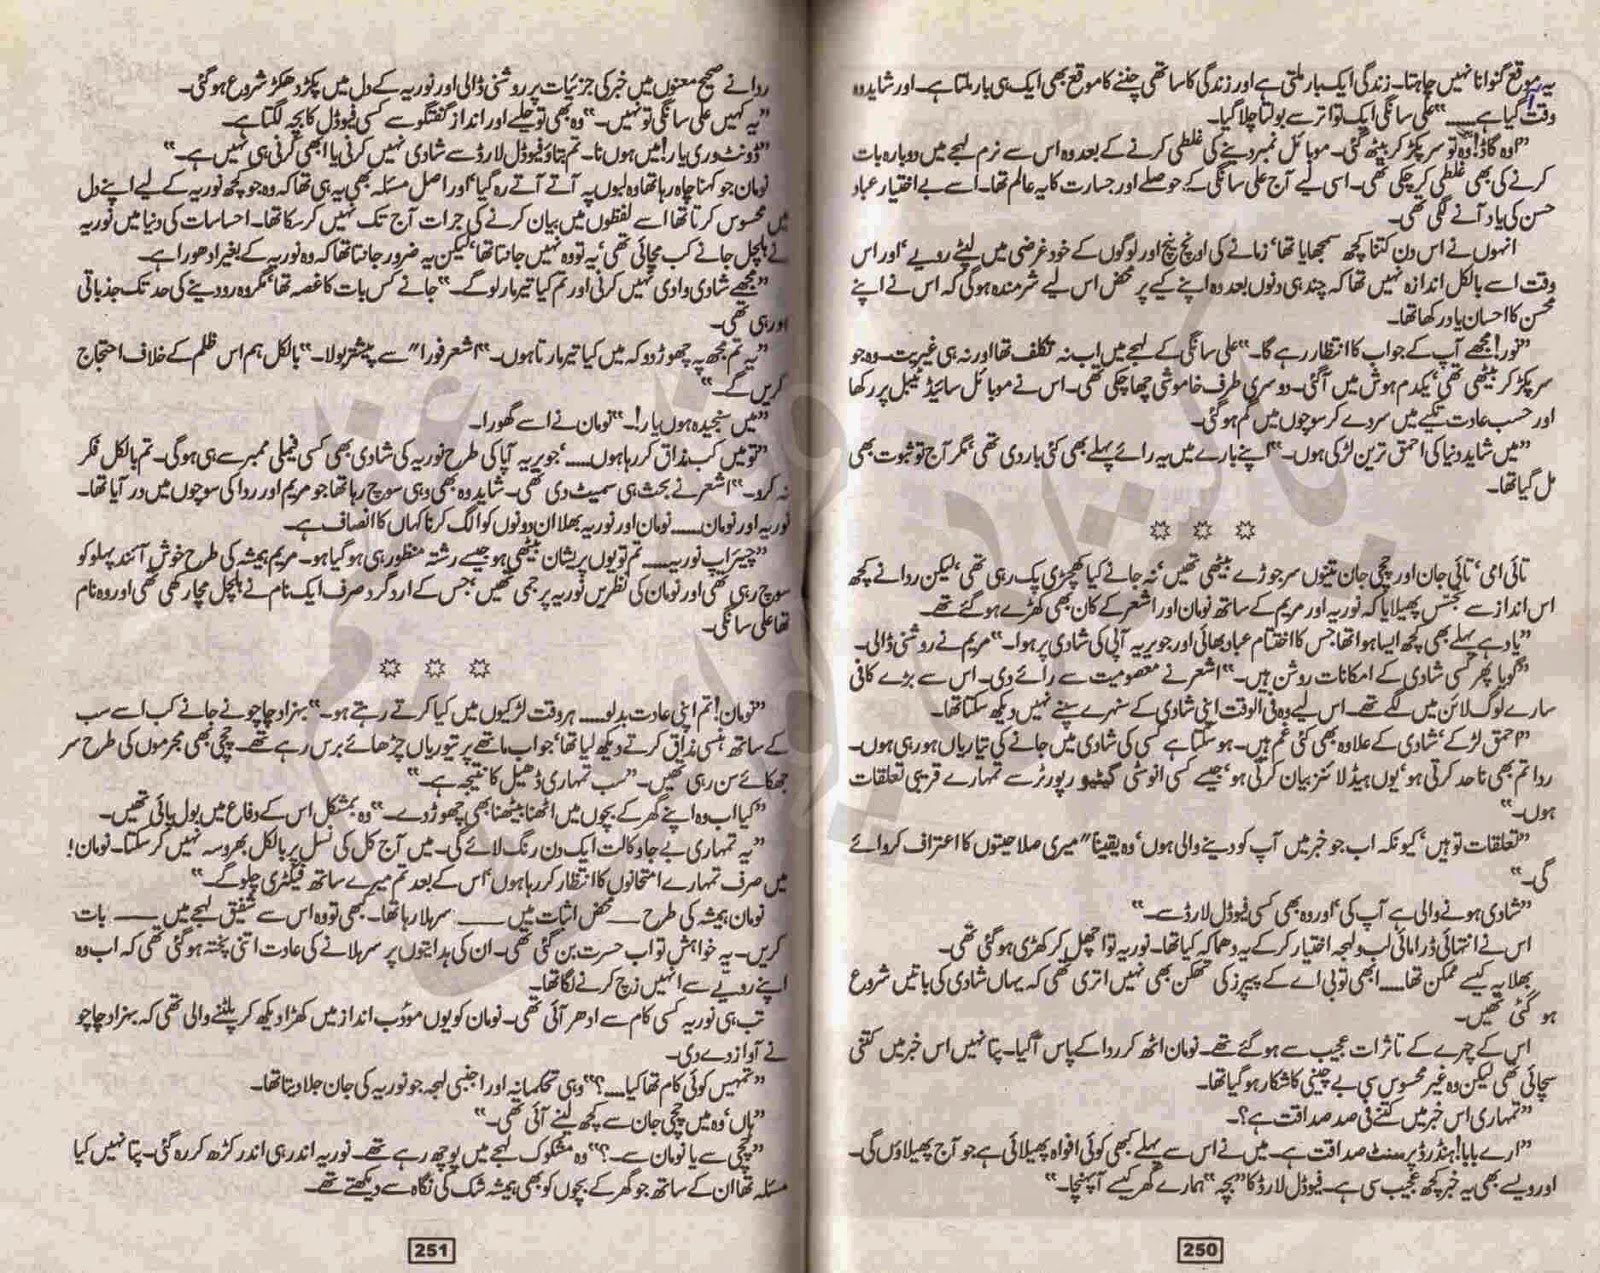 یہ موقع گنوانا نہیں چاہتا۔ زندگی ایک بار ملتی ہے اور زندگی کا ساتھی چننے کا موقع بھی ایک ہی بار ملتا ہے۔ اور شاید وہ
وقت آ گیا ہے...... “علی سانگی ایک تواتر سے بولتا چلا گیا۔
”اوہ گاڈ! وہ تو سر پکڑ کر بیٹھ گئی۔ موبائل نمبر دینے کی غلطی کرنے کے بعد وہ اس سے نرم لہجے میں دوبارہ بات
کرنے کی بھی غلطی کر چکی تھی۔ اسی لیے آج علی سانگی کے حوصلے اور جسارت کا یہ عالم تھا۔ اسے بے اختیار عباد
حسن کی یاد آنے لگی تھی۔
انہوں نے اس دن کتنا کچھ سمجھایا تھا‘ زمانے کی اونچ نیچ اور لوگوں کے خود غرضی میں لپٹے رویے‘ اور اس
وقت اسے بالکل اندازہ نہیں تھا کہ چند ہی دنوں بعد وہ اپنے کیے پر محض اس لیے شرمندہ ہوگی کہ اس نے اپنے
محسن کا احسان یاد رکھا تھا۔
”نور! مجھے آپ کے جواب کا انتظار رہے گا۔“ علی سانگی کے لہجے میں اب نہ تکلف تھا اور نہ ہی غیریت۔ وہ جو
سر پکڑ کر بیٹھی تھی‘ یکدم ہوش میں آ گئی۔ دوسری طرف خاموشی چھا چکی تھی۔ اس نے موبائل سائیڈ ٹیبل پر رکھا
اور حسب عادت تکیے میں سر دے کر سوچوں میں گم ہو گئی۔
”میں شاید دنیا کی احمق ترین لڑکی ہوں۔“ اپنے بارے میں یہ رائے پہلے بھی کئی بار دی تھی‘ مگر آج تو ثبوت بھی
مل گیا تھا۔
تائی امی‘ تائی جان اور چچی جان تینوں سر جوڑے بیٹھی تھیں‘ نہ جانے کیا کھچڑی پک رہی تھی‘ لیکن ردا نے کچھ
اس انداز سے تجسس پھیلایا کہ نوریہ اور مریم کے ساتھ نومان اور اشعر کے کان بھی کھڑے ہو گئے تھے۔
”یاد ہے پہلے بھی کچھ ایسا ہوا تھا جس کا اختتام عباد بھائی اور جویریہ آپی کی شادی پر ہوا۔“ مریم نے روشنی ڈالی۔
”گویا پھر کسی شادی کے امکانات روشن ہیں۔“ اشعر نے معصومیت سے رائے دی۔ اس سے بڑے کافی
سارے لوگ لائن میں لگے تھے۔ اس لیے وہ فی الوقت اپنی شادی کے سنہرے سپنے نہیں دیکھ سکتا تھا۔
”احمق لڑکے‘ شادی کے علاوہ بھی کئی غم ہیں۔ ہو سکتا ہے کسی کی شادی میں جانے کی تیاریاں ہو رہی ہوں۔
ردا تم بھی ناحد کرتی ہو‘ یوں ہیڈ لائنز بیان کرتی ہو‘ جیسے کسی انوسٹی گیٹیو رپورٹر سے تمہارے قریبی تعلقات
ہوں۔“
”تعلقات تو ہیں‘ کیونکہ اب جو خبر میں آپ کو دینے والی ہوں‘ وہ یقیناً میری صلاحیتوں کا اعتراف کروائے
گی۔“
”شادی ہونے والی ہے آپ کی‘ اور وہ بھی کسی فیوڈل لارڈ سے۔“
اس نے انتہائی ڈرامائی لب و لہجہ اختیار کر کے یہ دھماکہ کیا تھا۔ نوریہ تو اچھل کر کھڑی ہو گئی تھی۔
بھلا یہ کیسے ممکن تھا...... ابھی تو بی اے کے پیپرز کی تھکن بھی نہیں اتری تھی کہ یہاں شادی کی باتیں شروع
ہو گئی تھیں۔
اس کے چہرے کے تاثرات عجیب سے ہو گئے تھے۔ نومان اٹھ کر ردا کے پاس آ گیا۔ پتا نہیں اس خبر میں کتنی
سچائی تھی لیکن وہ غیر محسوس سی بے چینی کا شکار ہو گیا تھا۔
”تمہاری اس خبر میں کتنے فی صد صداقت ہے؟۔
”ارے بابا! ہنڈرڈ پرسنٹ صداقت ہے۔ میں نے اس سے پہلے کبھی کوئی افواہ پھیلائی ہے جو آج پھیلاؤں گی۔
اور ویسے بھی یہ خبر کچھ عجیب سی ہے۔ فیوڈل لارڈ کا ”بچہ“ ہمارے گھر کیسے آ پہنچا۔“
250
ردا نے صحیح معنوں میں خبر کی جزئیات پر روشنی ڈالی اور نوریہ کے دل میں پکڑ دھکڑ شروع ہو گئی۔
”یہ کہیں علی سانگی تو نہیں۔“ وہ بھی تو حلیے اور انداز گفتگو سے کسی فیوڈل کا بچہ لگتا ہے۔
”ڈونٹ وری یار! میں ہوں نا۔ تم بتاؤ فیوڈل لارڈ سے شادی نہیں کرنی یا ابھی کرنی ہی نہیں ہے۔“
نومان جو کہنا چاہ رہا تھا وہ لبوں پہ آتے آتے رہ گیا‘ اور اصل مسئلہ بھی یہ ہی تھا کہ وہ جو کچھ نوریہ کے لیے اپنے دل
میں محسوس کرتا تھا اسے لفظوں میں بیان کرنے کی جرات آج تک نہیں کر سکا تھا۔ احساسات کی دنیا میں نوریہ
نے ہلچل جانے کب مچائی تھی‘ یہ تو وہ نہیں جانتا تھا‘ لیکن یہ ضرور جانتا تھا کہ وہ نوریہ کے بغیر ادھورا ہے۔
”مجھے شادی وادی نہیں کرنی اور تم کیا تیر مار لو گے۔“ جانے کس بات کا غصہ تھا‘ مگر وہ رو دینے کی حد تک جذباتی
ہو رہی تھی۔
”یہ تم مجھ پہ چھوڑ دو کہ میں کیا تیر مارتا ہوں۔“ اشعر فوراً سے پیشتر بولا۔ ”بالکل ہم اس ظلم کے خلاف احتجاج
کریں گے۔“
”میں سنجیدہ ہوں یار!۔“ نومان نے اسے گھورا۔
”تو میں کب مذاق کر رہا ہوں......‘ جویریہ آپا کی طرح نوریہ کی شادی بھی کسی فیملی ممبر سے ہی ہوگی۔ تم بالکل فکر
نہ کرو۔“ اشعر نے بحث ہی سمیٹ دی تھی۔ شاید وہ بھی وہی سوچ رہا تھا جو مریم اور ردا کی سوچوں میں در آیا تھا۔
نوریہ اور نومان...... نومان اور نوریہ بھلا ان دونوں کو الگ کرنا کہاں کا انصاف ہے۔
”چیئر اپ نوریہ...... تم تو یوں پریشان بیٹھی ہو جیسے رشتہ منظور ہی ہو گیا ہو۔ مریم ہمیشہ کی طرح خوش آئند پہلو کو
سوچ رہی تھی اور نومان کی نظریں نوریہ پر جمی تھیں‘ جس کے ارد گرد صرف ایک نام نے ہلچل مچا رکھی تھی اور وہ نام
تھا علی سانگی۔
”نومان! تم اپنی عادت بدلو...... ہر وقت لڑکیوں میں کیا کرتے رہتے ہو۔“ بہزاد چاچو نے جانے کب اسے سب
کے ساتھ ہنسی مذاق کرتے دیکھ لیا تھا‘ جو اب ماتھے پر تیوریاں چڑھائے برس رہے تھے۔ چچی بھی مجرموں کی طرح سر
جھکائے سن رہی تھیں۔ ”سب تمہاری ڈھیل کا نتیجہ ہے۔“
”کیا اب وہ اپنے گھر کے بچوں میں اٹھنا بیٹھنا بھی چھوڑ دے۔“ وہ بمشکل اس کے دفاع میں بول پائی تھیں۔
”یہ تمہاری بے جا وکالت ایک دن رنگ لائے گی۔ میں آج کل کی نسل پر بالکل بھروسہ نہیں کر سکتا۔ نومان!
میں صرف تمہارے امتحانوں کا انتظار کر رہا ہوں‘ اس کے بعد تم میرے ساتھ فیکٹری چلو گے۔“
نومان ہمیشہ کی طرح ...... محض اثبات میں ...... سر ہلا رہا تھا۔ کبھی تو وہ اس سے شفیق لہجے میں ...... بات
کریں۔ یہ خواہش تو اب حسرت بن گئی تھی۔ ان کی ہدایتوں پر سر ہلانے کی عادت اتنی پختہ ہو گئی تھی کہ اب وہ
اپنے رویے سے انہیں زچ کرنے لگا تھا۔
تب ہی نوریہ کسی کام سے ادھر آئی تھی۔ نومان کو یوں مؤدب انداز میں کھڑا دیکھ کر پلٹنے والی تھی کہ بہزاد چاچو
نے آواز دے دی۔
”تمہیں کوئی کام تھا کیا......؟“ وہی تحکمانہ اور اجنبی لہجہ جو نوریہ کی جان جلا دیتا تھا۔
”ہاں‘ وہ میں چچی جان سے کچھ لینے آئی تھی۔“
”چچی سے یا نومان سے۔؟“ وہ مشکوک لہجے میں پوچھ رہے تھے۔ نوریہ اندر ہی اندر کڑھ کر رہ گئی۔ پتا نہیں کیا
مسئلہ تھا ان کے ساتھ جو گھر کے بچوں کو بھی ہمیشہ شک کی نگاہ سے دیکھتے تھے۔
251